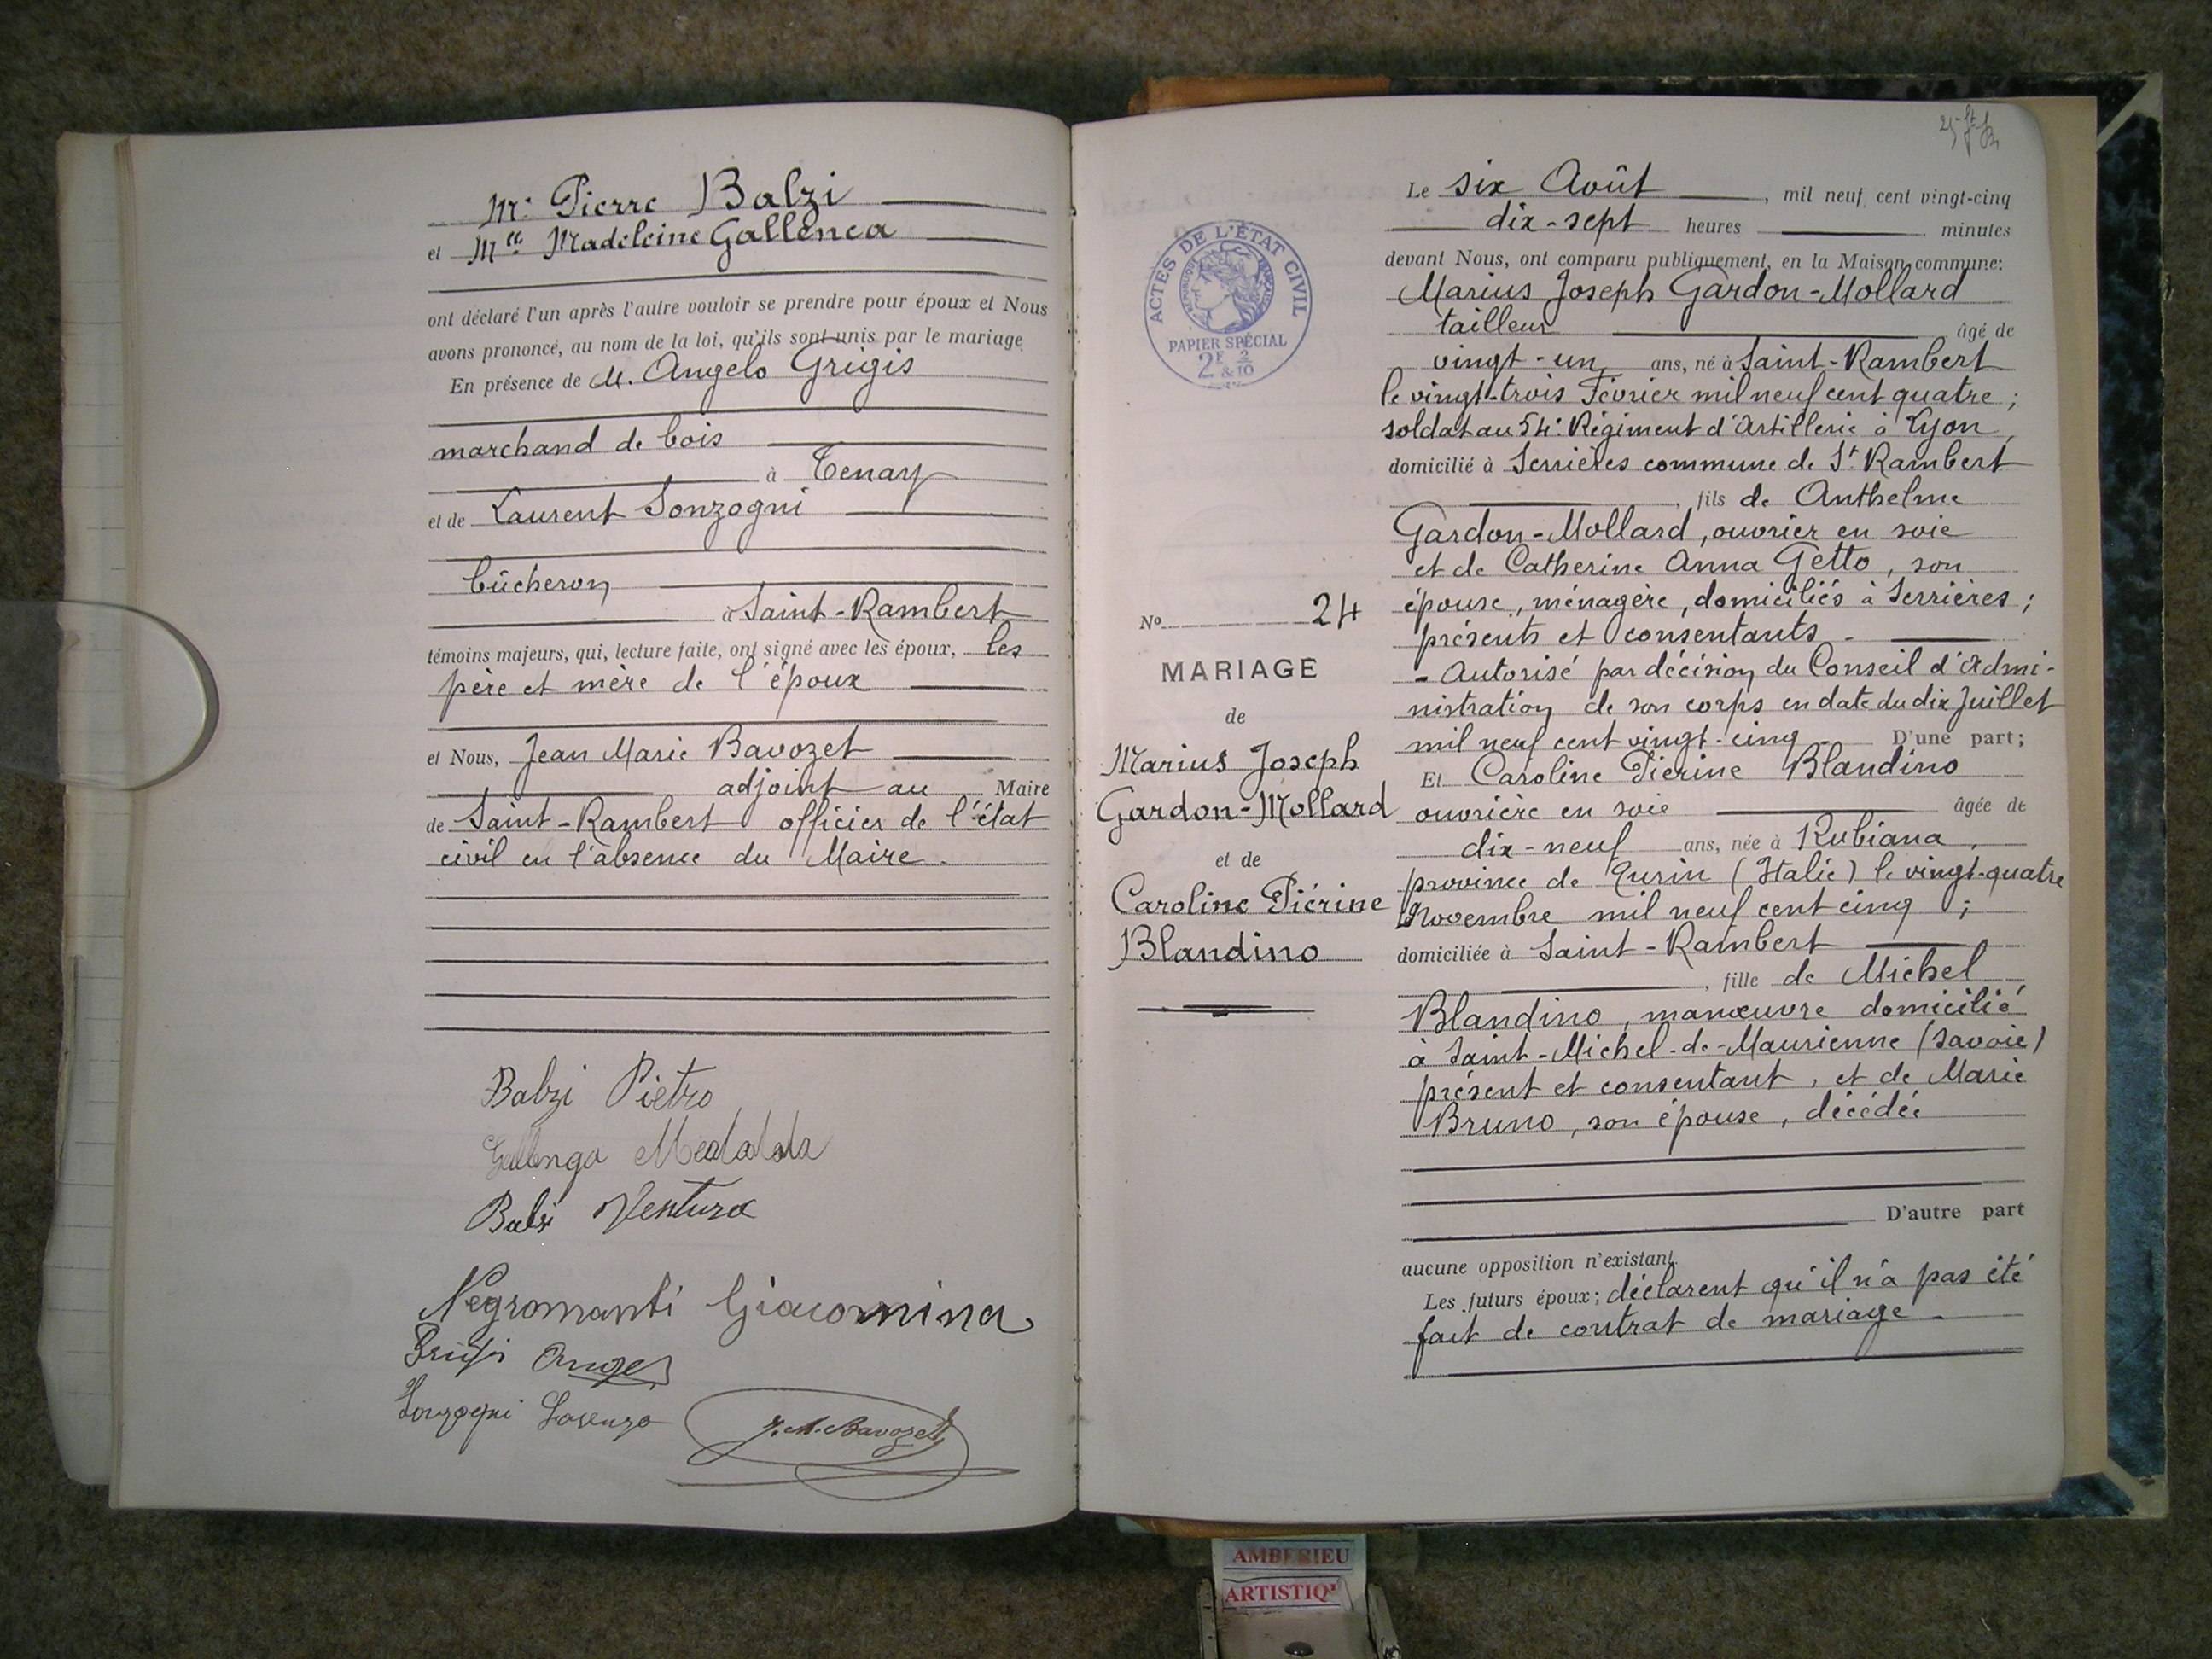 Mr. Pierre Balzi
et Melle Madeleine Gallenca
ont déclaré l'un après l'autre vouloir se prendre pour époux et Nous
avons prononcé, au nom de la loi, qu'ils sont unis par le mariage
En présence de M. Angelo Grigis
marchand de bois
à Tenay
et de Laurent Sonzogni
bûcheron
à Saint-Rambert
témoins majeurs, qui, lecture faite, ont signé avec les époux, les
père et mère de l'époux
et Nous, Jean Marie Bavozet
adjoint au Maire
de Saint-Rambert officier de l'état
civil en l'absence du Maire.
Balzi Pietro
Gallenga
Balzi Ventura
Negromanti Giacomina
Sonzogni Lorenzo
J. M. Bavozet
ACTES DE L'ÉTAT CIVIL
RÉPUBLIQUE FRANÇAISE
PAPIER SPÉCIAL
2F 2/10
&
No 24
MARIAGE
de
Marius Joseph
Gardon-Mollard
et de
Caroline Piérine
Blandino
Le six Août, mil neuf cent vingt-cinq
dix-sept heures minutes
devant Nous, ont comparu publiquement, en la Maison commune:
Marius Joseph Gardon-Mollard
tailleur âgé de
vingt-un ans, né à Saint-Rambert
le vingt-trois Février mil neuf cent quatre;
soldat au 54e Régiment d'Artillerie à Lyon,
domicilié à Serrières commune de St Rambert
, fils de Anthelme
Gardon-Mollard, ouvrier en soie
et de Catherine Anna Getto, son
épouse, ménagère, domiciliés à Serrières;
présents et consentants.
- Autorisé par décision du Conseil d'Admi-
nistration de son corps en date du dix Juillet
mil neuf cent vingt-cinq D'une part;
Et Caroline Pierine Blandino
ouvrière en soie âgée de
dix-neuf ans, née à Rubiana,
province de Turin (Italie) le vingt-quatre
Novembre mil neuf cent cinq;
domiciliée à Saint-Rambert
, fille de Michel
Blandino, manœuvre domicilié
à Saint-Michel-de-Maurienne (Savoie)
présent et consentant, et de Marie
Bruno, son épouse, décédée
D'autre part
aucune opposition n'existant.
Les futurs époux; déclarent qu'il n'a pas été
fait de contrat de mariage.
AMBERIEU
ARTISTIQ